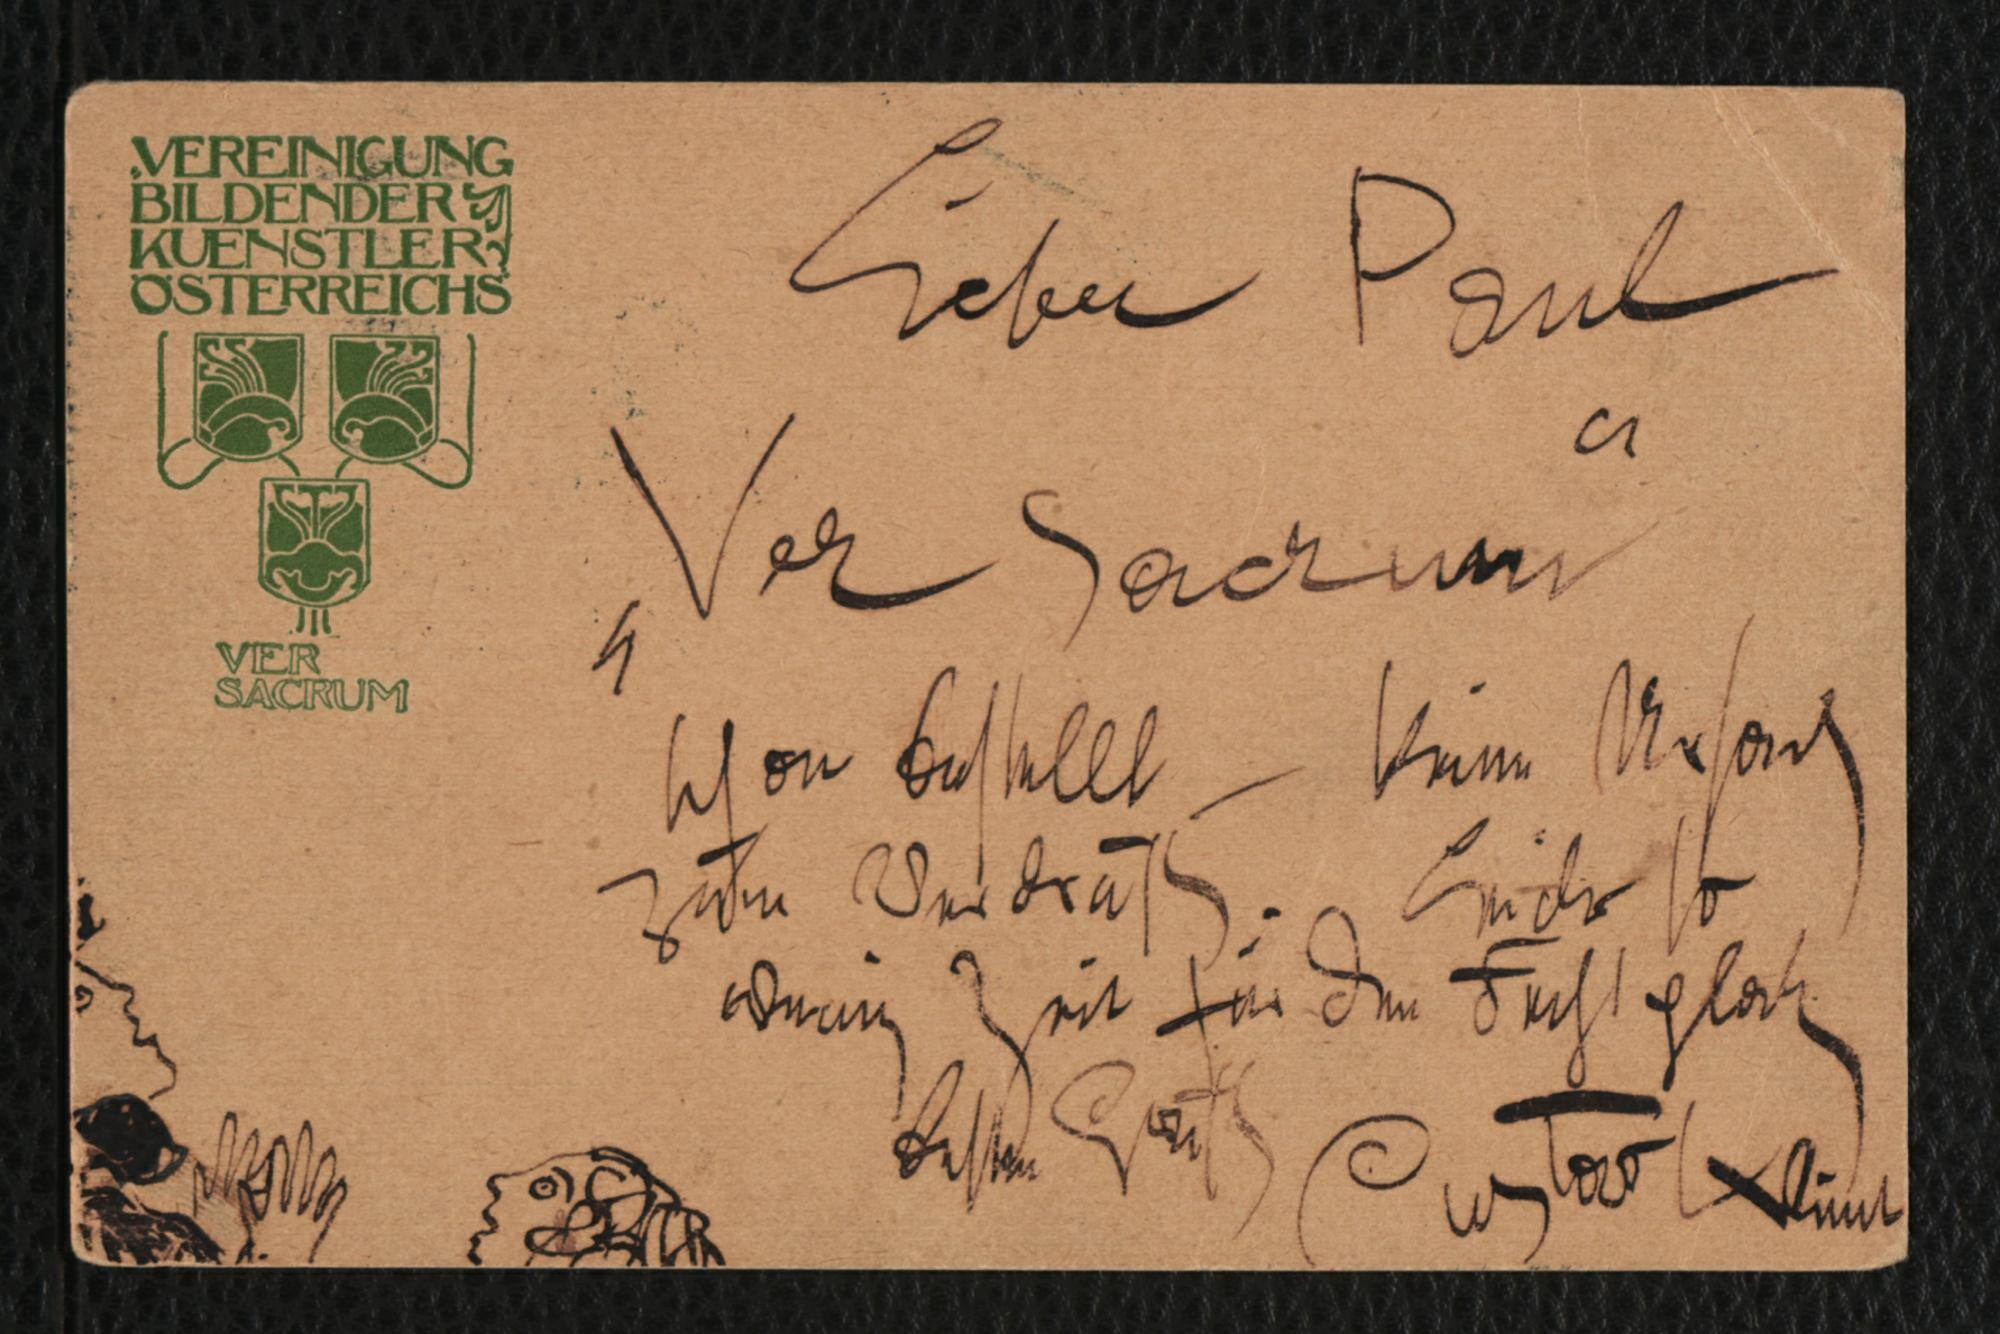 VEREINIGUNG
BILDENDER
KUENSTLER
ÖSTERREICHS
VER
SACRUM
Lieber Paul
"Ver Sacrum"
schon bestellt – keine
zum Verdruß. Leider so
wenig Zeit für den
besten Gruß
Gustav Klimt